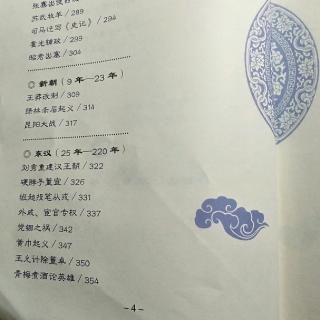 张骞出使西域
苏武牧羊 / 289
司马迁写《史记》 / 294
霍光辅政 / 299
昭君出塞 / 304
◎ 新朝（9 年—23 年）
王莽改制 / 309
绿林赤眉起义 / 314
昆阳大战 / 317
◎ 东汉（25 年—220 年）
刘秀重建汉王朝 / 322
硬脖子董宣 / 326
班超投笔从戎 / 331
外戚、宦官专权 / 337
党锢之祸 / 342
黄巾起义 / 347
王允计除董卓 / 350
青梅煮酒论英雄 / 354
– 4 –